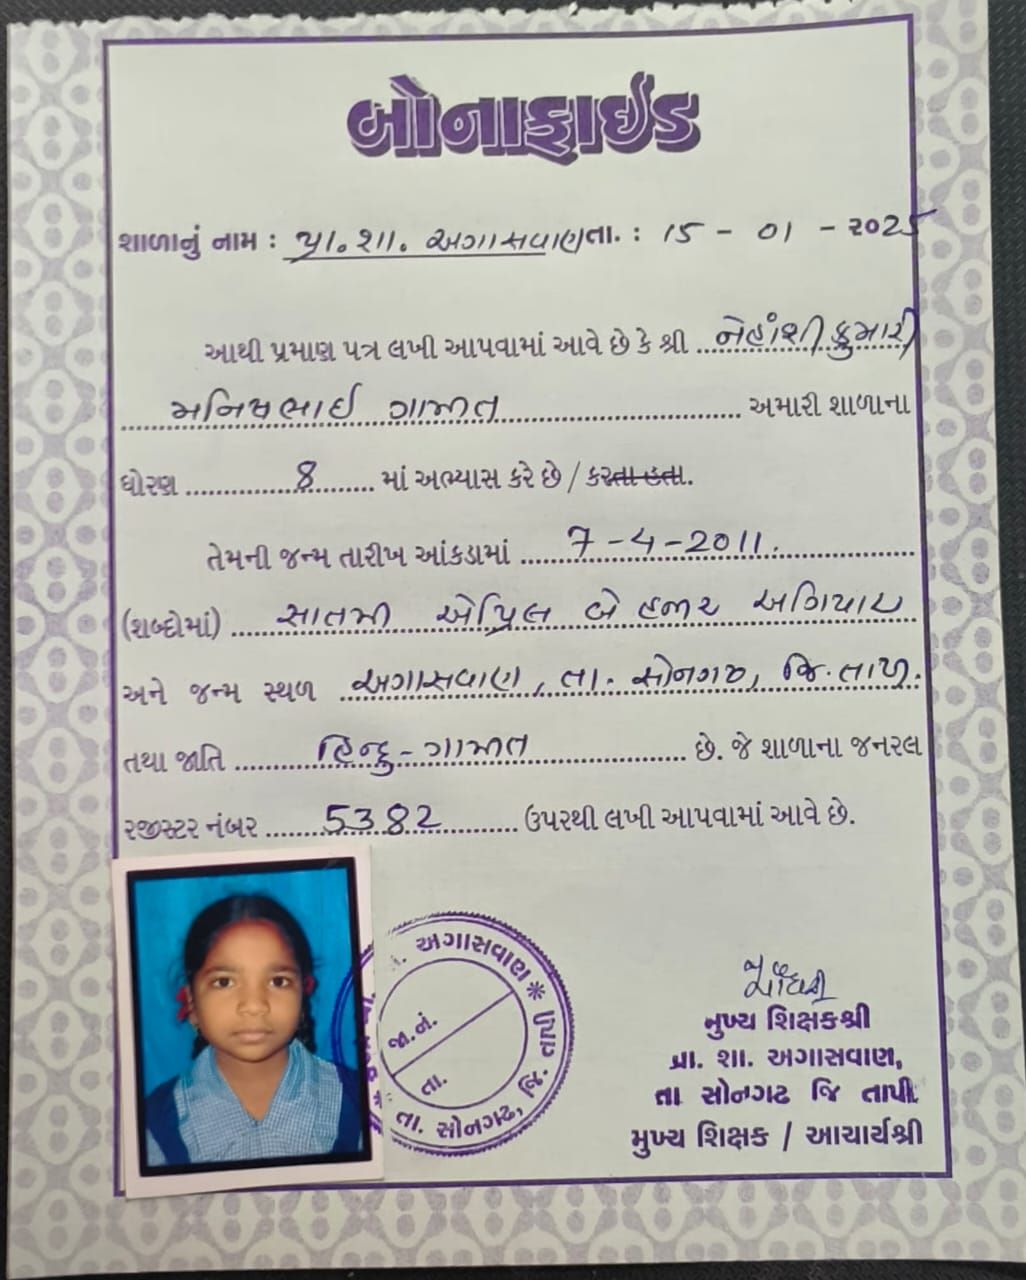 બોનાફાઈડ
શાળાનું નામ : પ્રા. શા. અગાસવાણ તા. : ૧૫ - ૦૧ - ૨૦૨5
આથી પ્રમાણ પત્ર લખી આપવામાં આવે છે કે શ્રી નેહાંશીકુમારી
મનિષભાઈ ગામીત અમારી શાળાના
ધોરણ 8 માં અભ્યાસ કરે છે / કરતા હતા.
તેમની જન્મ તારીખ આંકડામાં 7-4-2011.
(શબ્દોમાં) સાતમી એપ્રિલ બે હજાર અગિયાર
અને જન્મ સ્થળ અગાસવાણ, તા. સોનગઢ, જિ. તાપી.
તથા જાતિ હિન્દુ - ગામીત છે. જે શાળાના જનરલ
રજીસ્ટર નંબર 5382 ઉપરથી લખી આપવામાં આવે છે.
અગાસવાણ * જિ. તાપી
જા. નં.
તા.
તા. સોનગઢ,
મુખ્ય શિક્ષકશ્રી
પ્રા. શા. અગાસવાણ,
તા સોનગઢ જિ તાપી
મુખ્ય શિક્ષક / આચાર્યશ્રી